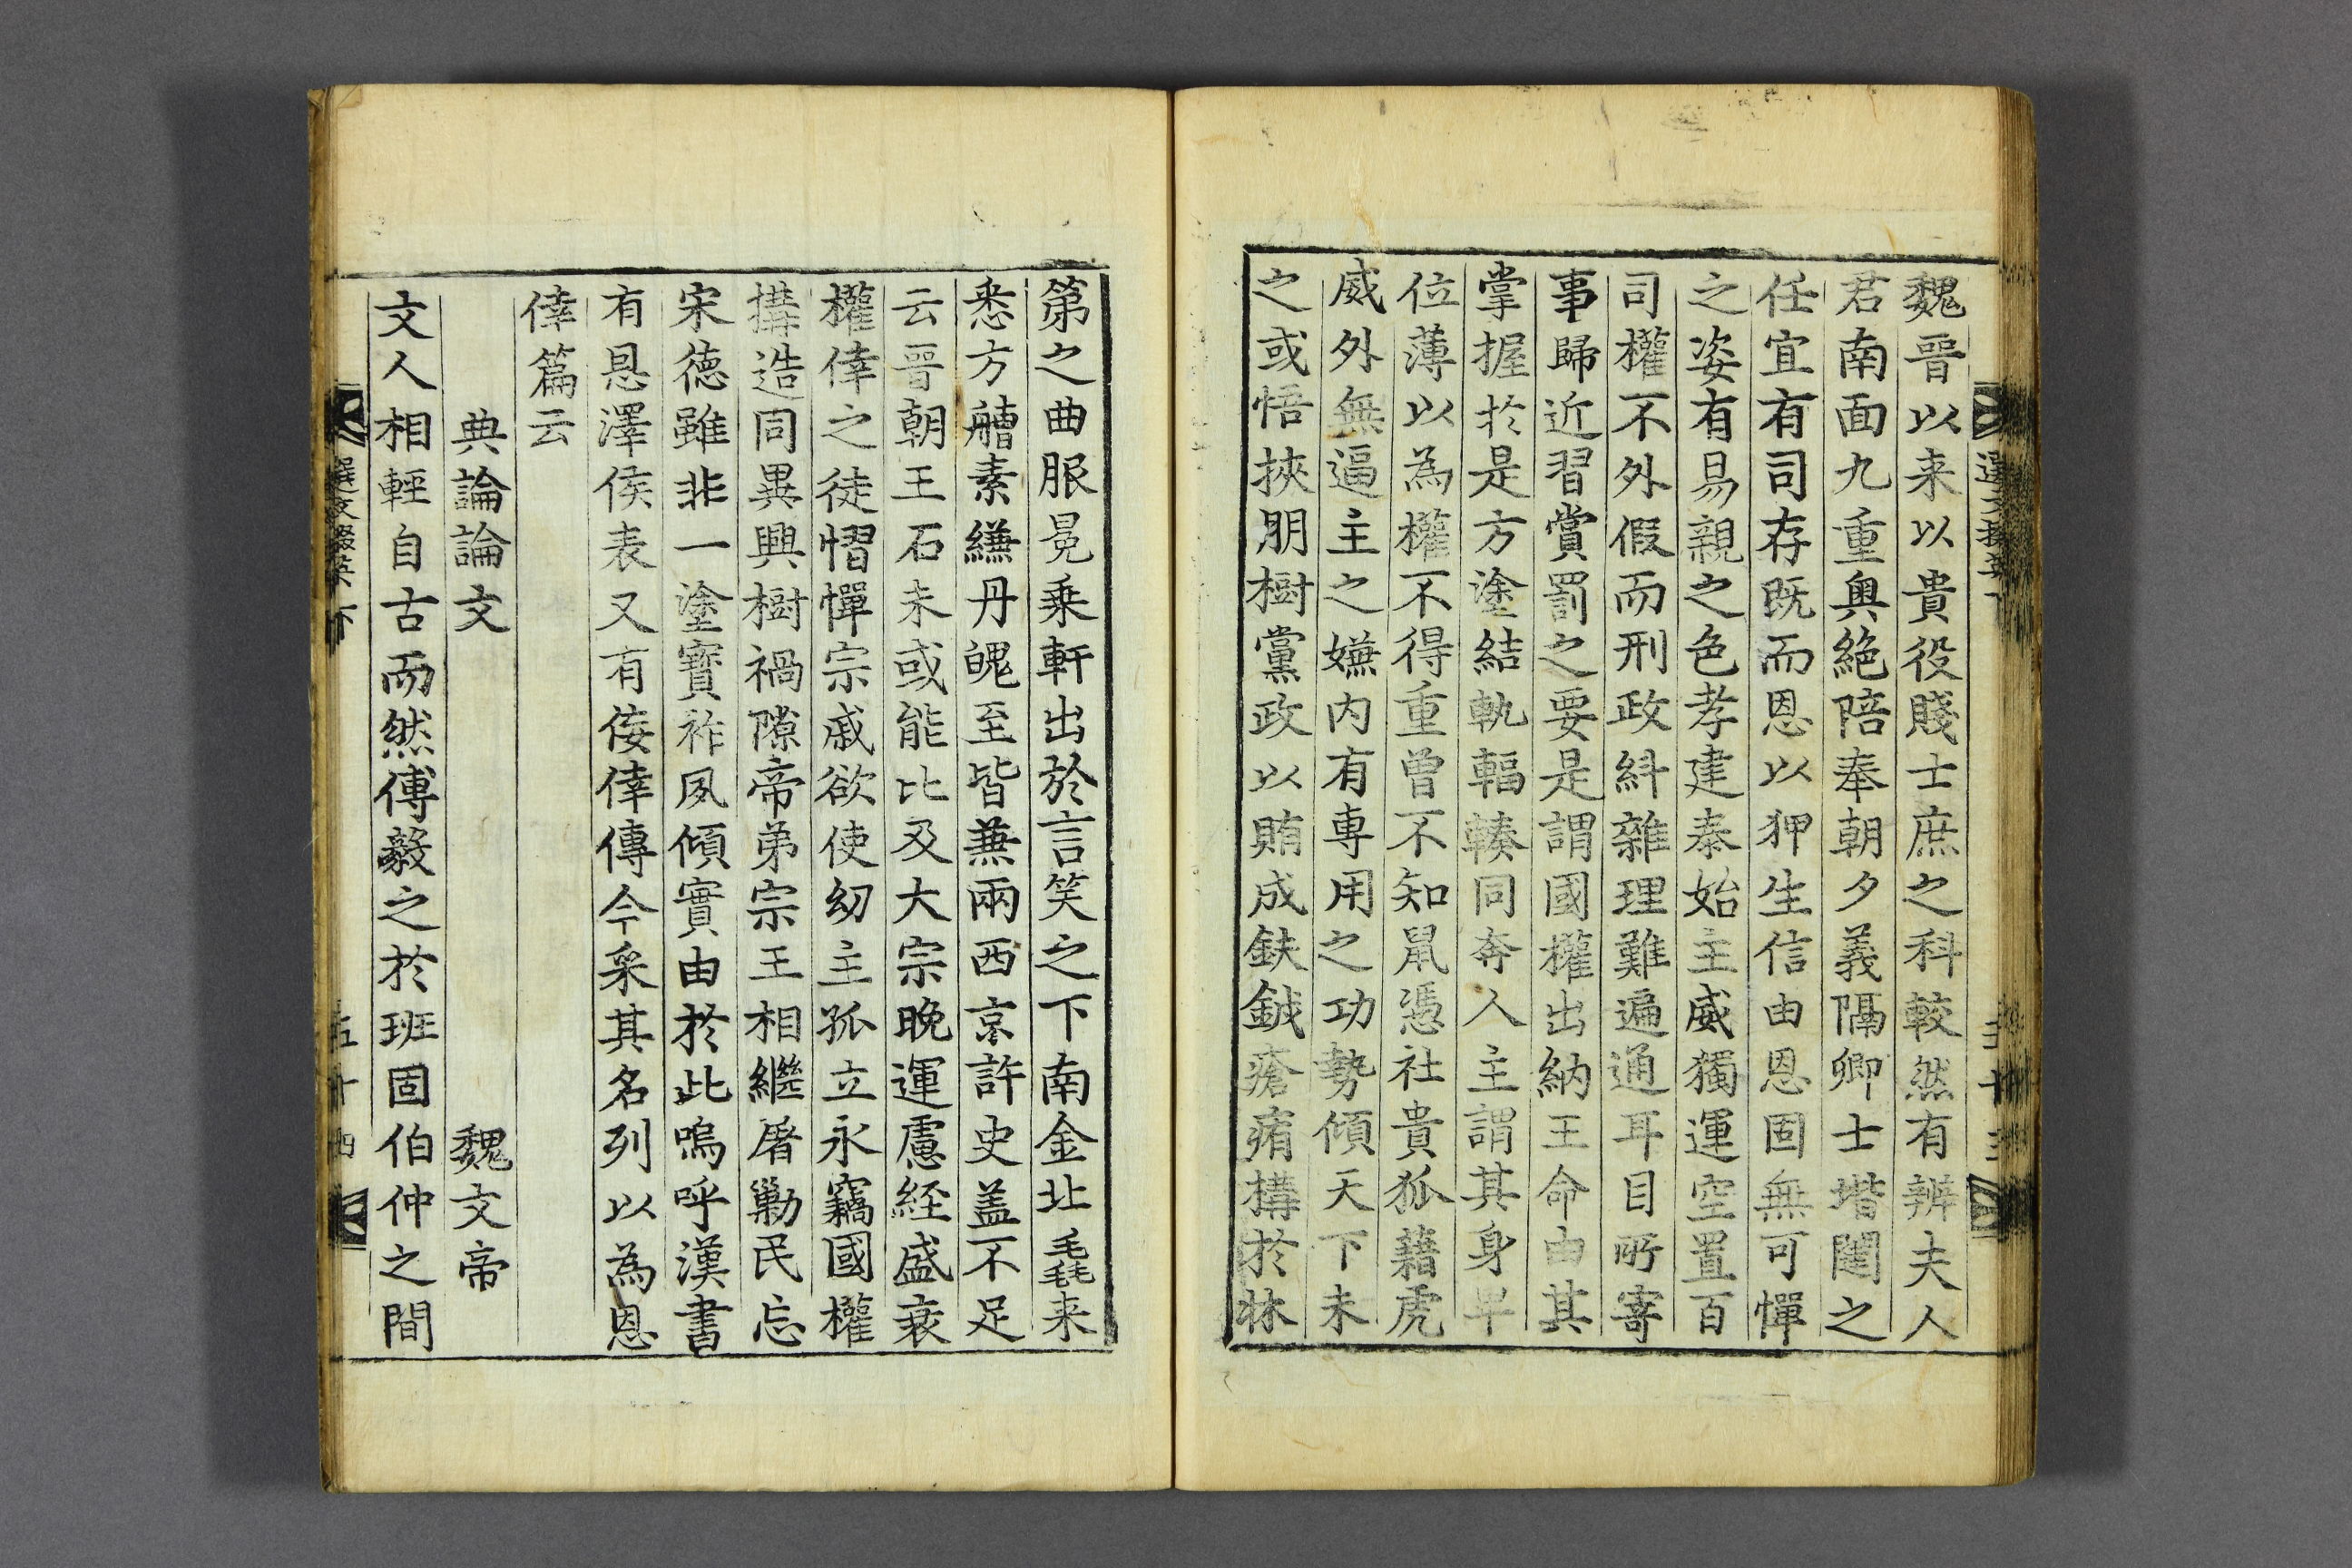 魏晉以来以貴役賤士庶之科較然有辨夫人
君南面九重奧絕陪奉朝夕義隔卿士堦闥之
任宜有司存既而恩以狎生信由恩固無可憚
之姿有易親之色孝建泰始主威獨運空置百
司權不外假而刑政糾雜理難遍通耳目所寄
事歸近習賞罰之要是謂國權出納王命由其
掌握於是方塗結軌輻輳同奔人主謂其身卑
位薄以為權不得重曾不知鼠憑社貴狐藉虎
威外無逼主之嫌内有專用之功勢傾天下未
之或悟挾朋樹黨政以賄成鈇鉞瘡痏構於牀
第之曲服冕乗軒出於言笑之下南金北毳来
悉方艚素縑丹魄至皆兼兩西京許史盖不足
云晉朝王石未或能比及大宗晚運慮経盛衰
權倖之徒慴憚宗戚欲使幼主孤立永竊國權
搆造同異興樹禍隙帝弟宗王相繼屠勦民忘
宋徳雖非一塗寶祚夙傾實由於此嗚呼漢書
有恩澤侯表又有佞倖傳今采其名列以為恩
倖篇云
典論論文 魏文帝
文人相輕自古而然傅毅之於班固伯仲之間
選文掇英下
五十四